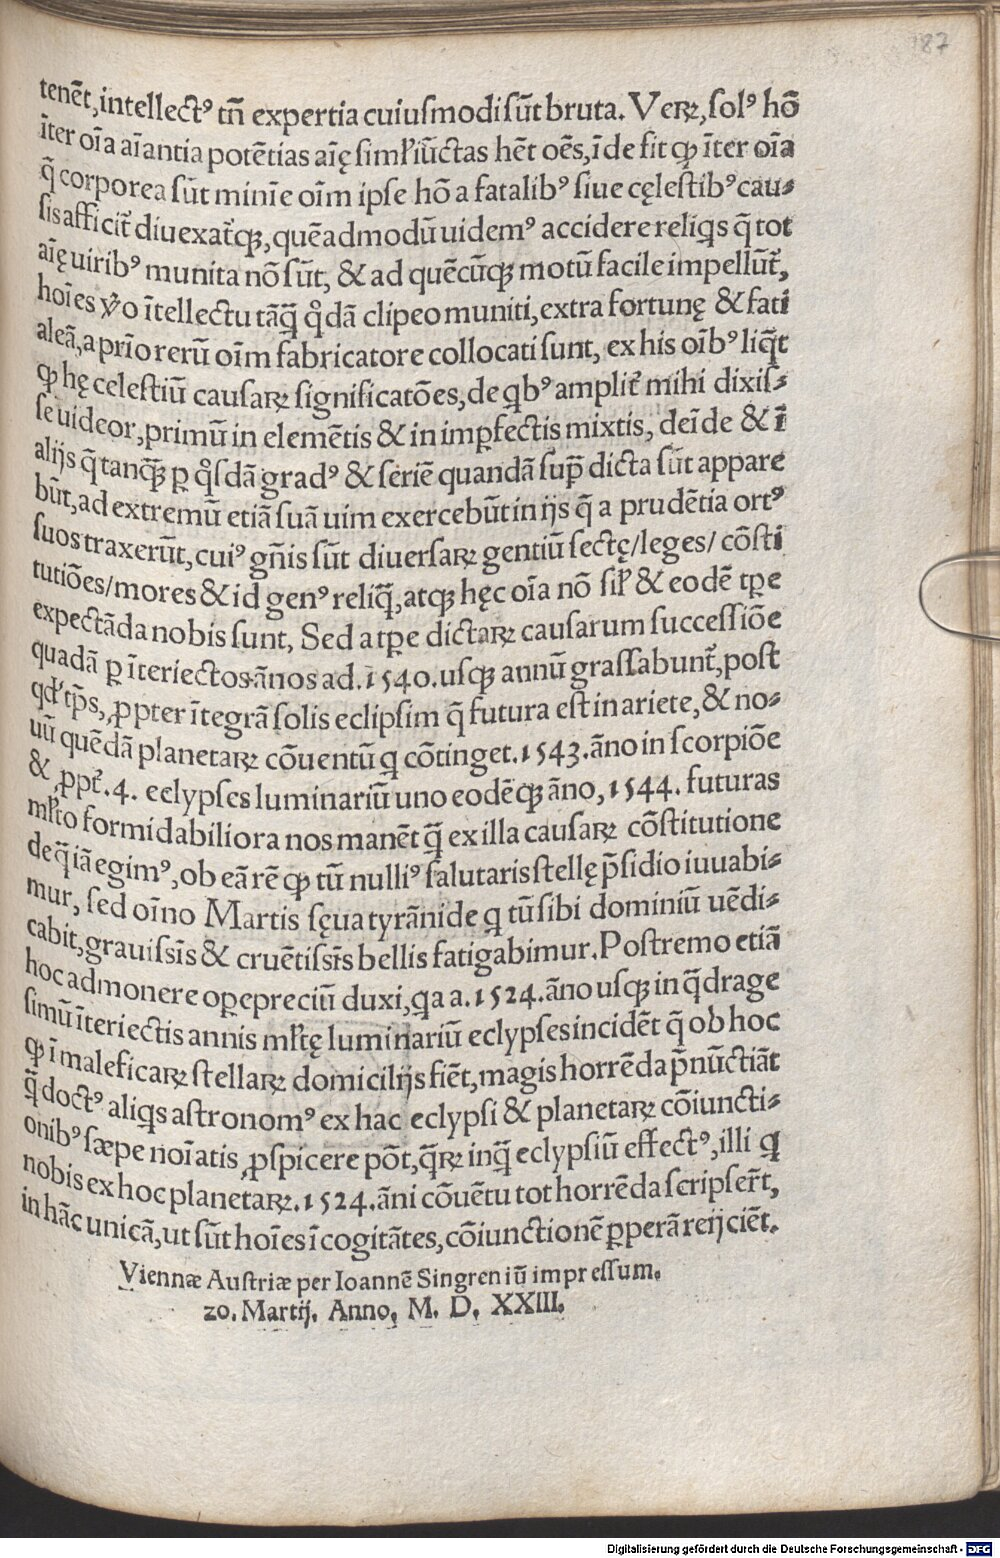 187
tenēt, intellectꝰ tñ expertia cuiusmodi sūt bruta. Veꝝ, solꝰ hō
īter oīa aīantia potētias aīę simĺ iūctas hēt oēs, īde fit ꝙ īter oīa
q̄ corporea sūt minīe oīm ipse hō a fatalibꝰ siue cęlestibꝰ cau⸗
sis afficit᷑ diuexat᷑qꝫ, quēadmodū uidemꝰ accidere reliqs q̄ tot
aīę uiribꝰ munita nō sūt, & ad quēcūqꝫ motū facile impellūt᷑,
hoīes ỽo ītellectu tāq̄ qͦdā clipeo muniti, extra fortunę & fati
aleā, a prīo rerū oīm fabricatore collocati sunt, ex his oībꝰ liq̄t
ꝙ hę celestiū causaꝝ significatōes, de qbꝰ amplit᷑ mihi dixis⸗
se uideor, primū in elemētis & in imꝑfectis mixtis, deīde & ī
alijs q̄ tanqꝫ̄ ꝑ qͦsdā gradꝰ & seriē quandā sup̄dicta sūt appare
būt, ad extremū etiā suā uim exercebūt in ijs q̄ a prudētia ortꝰ
suos traxerūt, cuiꝰ gñis sūt diuersaꝝ gentiū sectę/leges/cōsti
tutiōes/mores & id genꝰ reliq̄, atqꝫ hęc oīa nō siĺ & eodē tꝑe
expectāda nobis sunt, Sed a tꝑe dictaꝝ causarum successiōe
quadā ꝑ īteriectos ānos ad .1540. usqꝫ annū grassabunt᷑, post
qđ tp̄s, ꝓpter ītegrā solis eclipsim q̄ futura est in ariete, & no⸗
uū quēdā planetaꝝ cōuentū q cōtinget .1543. āno in scorpiōe
& ꝓpt᷑ .4. eclypses luminariū uno eodēqꝫ āno, 1544. futuras
mĺto formidabiliora nos manēt q̄ ex illa causaꝝ cōstitutione
de q̄ iā egimꝰ, ob eā rē ꝙ tū nulliꝰ salutaris stellę p̄sidio iuuabi⸗
mur, sed oīno Martis sęua tyrānide q tū sibi dominiū uēdi⸗
cabit, grauissīs & cruētissīs bellis fatigabimur. Postremo etiā
hoc admonere oꝑepreciū duxi, qa a .1524. āno usqꝫ in q̄drage
simū īteriectis annis mĺtę luminariū eclypses incidēt q̄ ob hoc
ꝙ ī maleficaꝝ stellaꝝ domicilijs fiēt, magis horrēda p̄nūctiāt
q̄ doctꝰ aliqs astronomꝰ ex hac eclypsi & planetaꝝ cōiuncti⸗
onibꝰ sæpe noīatis ꝓspicere pōt, q̄ꝝ inq̄ eclypsiū effectꝰ, illi q
nobis ex hoc planetaꝝ .1524. āni cōuētu tot horrēda scripser̄t,
in hāc unicā, ut sūt hoīes īcogitātes, cōiunctionē ꝑperā reijciēt.
Viennæ Austriæ per Ioannē Singreniū impressum.
20. Martij. Anno, M. D. XXIII.
Digitalisierung gefördert durch die Deutsche Forschungsgemeinschaft - DFG